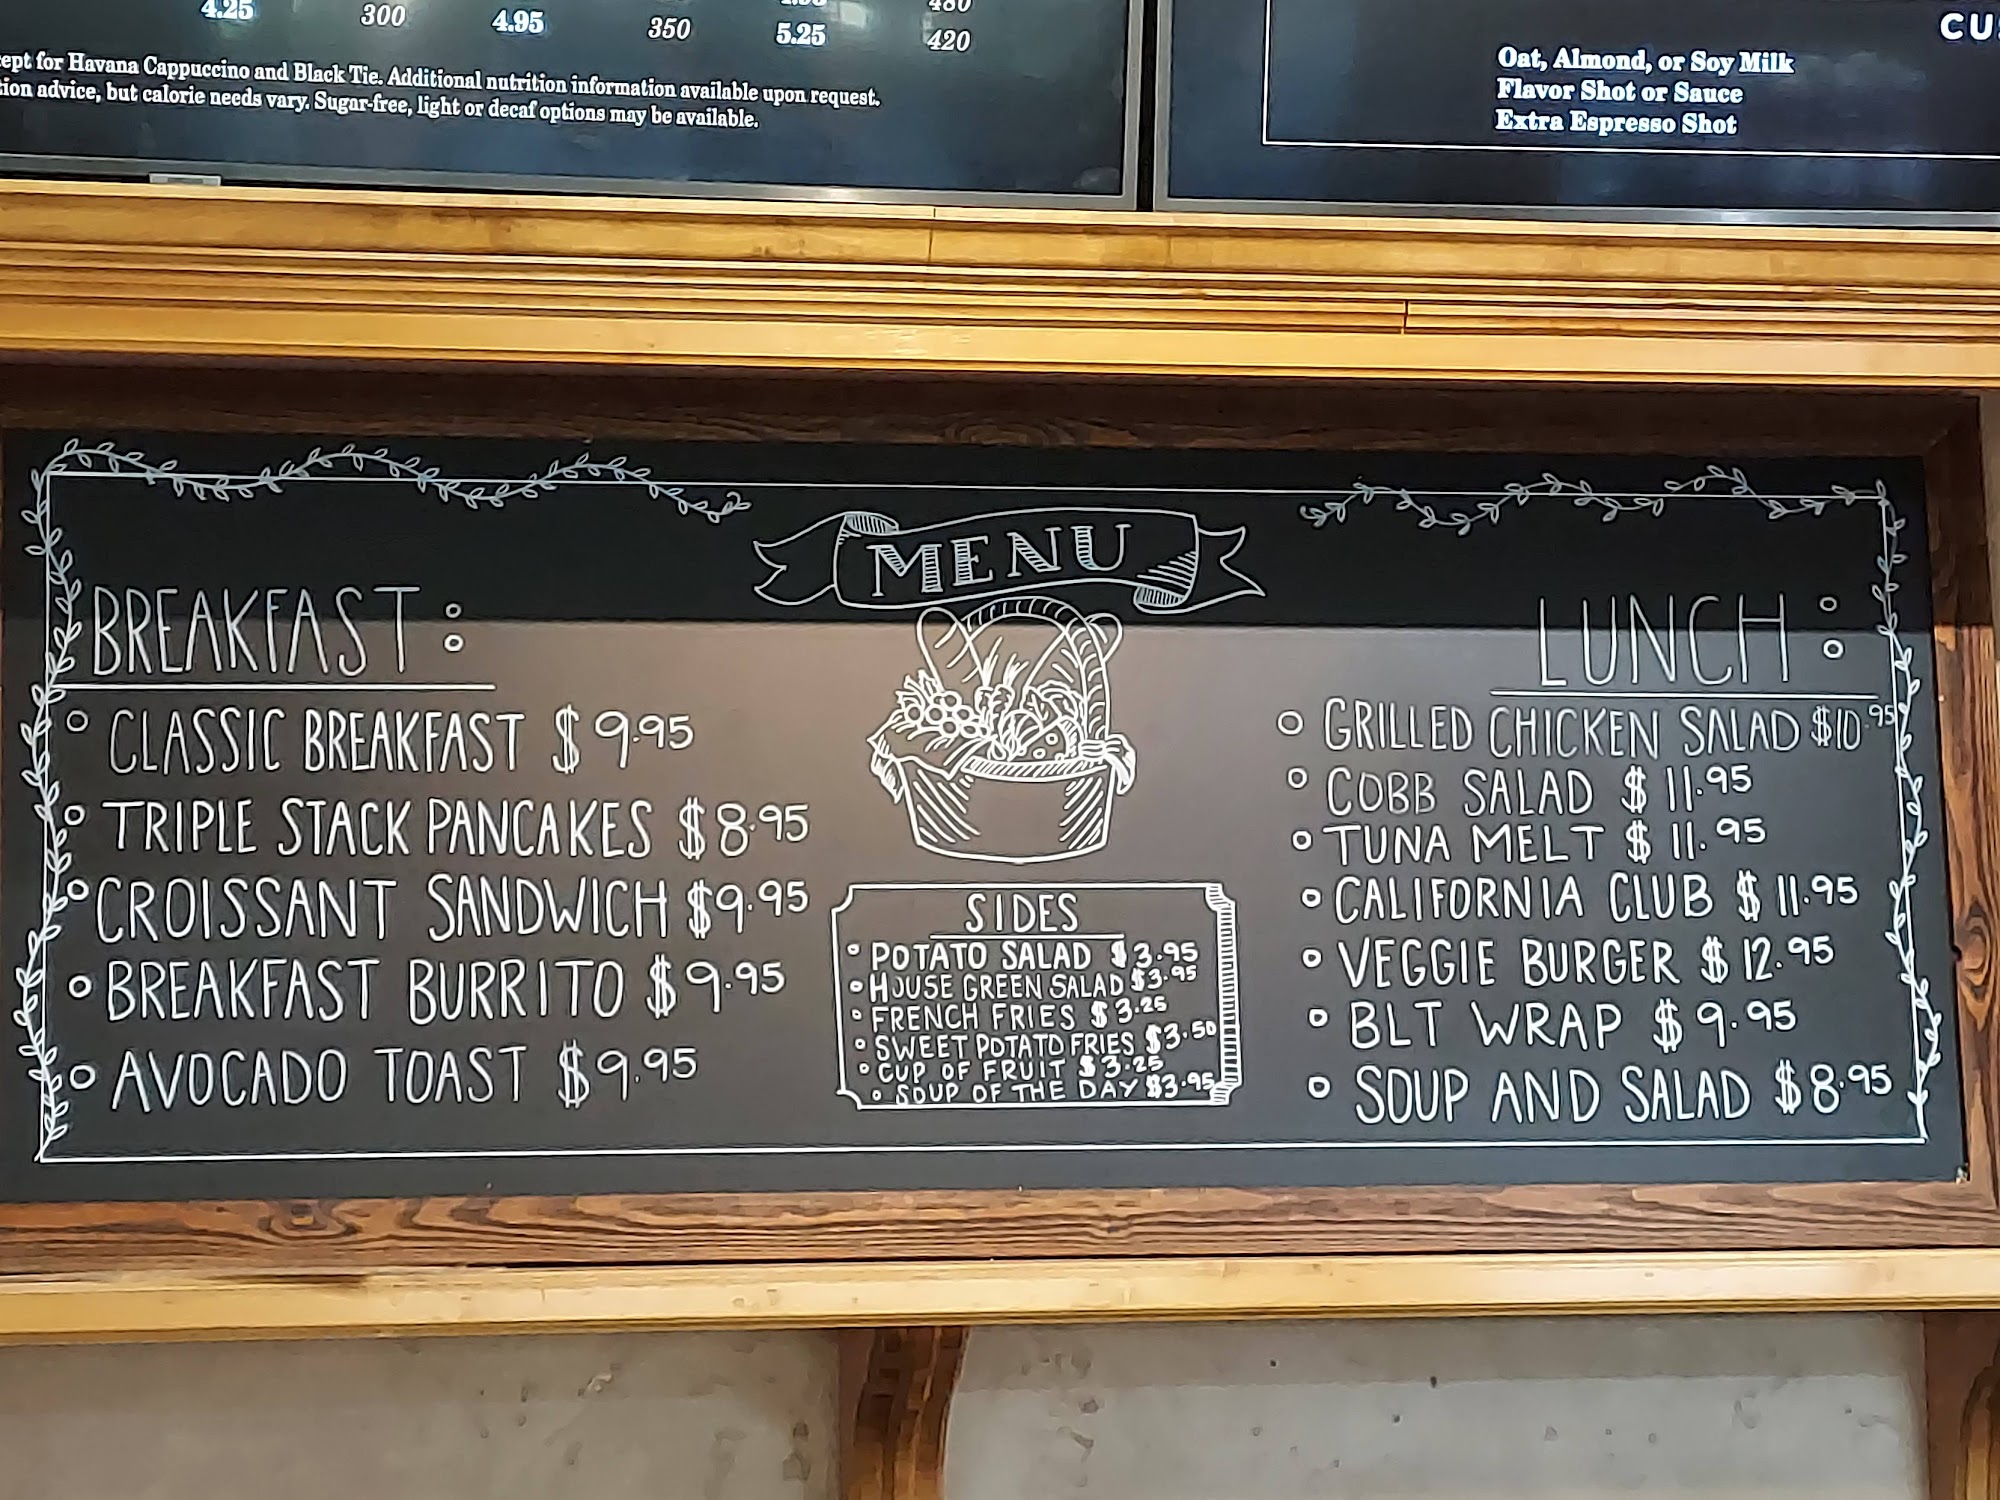 4.25 300 4.95 350 5.25 420
480
ept for Havana Cappuccino and Black Tie. Additional nutrition information available upon request.
ion advice, but calorie needs vary. Sugar-free, light or decaf options may be available.
CU
Oat, Almond, or Soy Milk
Flavor Shot or Sauce
Extra Espresso Shot
MENU
BREAKFAST:
CLASSIC BREAKFAST $9.95
TRIPLE STACK PANCAKES $8.95
CROISSANT SANDWICH $9.95
BREAKFAST BURRITO $9.95
AVOCADO TOAST $9.95
SIDES
POTATO SALAD $3.95
HOUSE GREEN SALAD $3.95
FRENCH FRIES $3.25
SWEET POTATO FRIES $3.50
CUP OF FRUIT $3.25
SOUP OF THE DAY $3.95
LUNCH:
GRILLED CHICKEN SALAD $10.95
COBB SALAD $11.95
TUNA MELT $11.95
CALIFORNIA CLUB $11.95
VEGGIE BURGER $12.95
BLT WRAP $9.95
SOUP AND SALAD $8.95